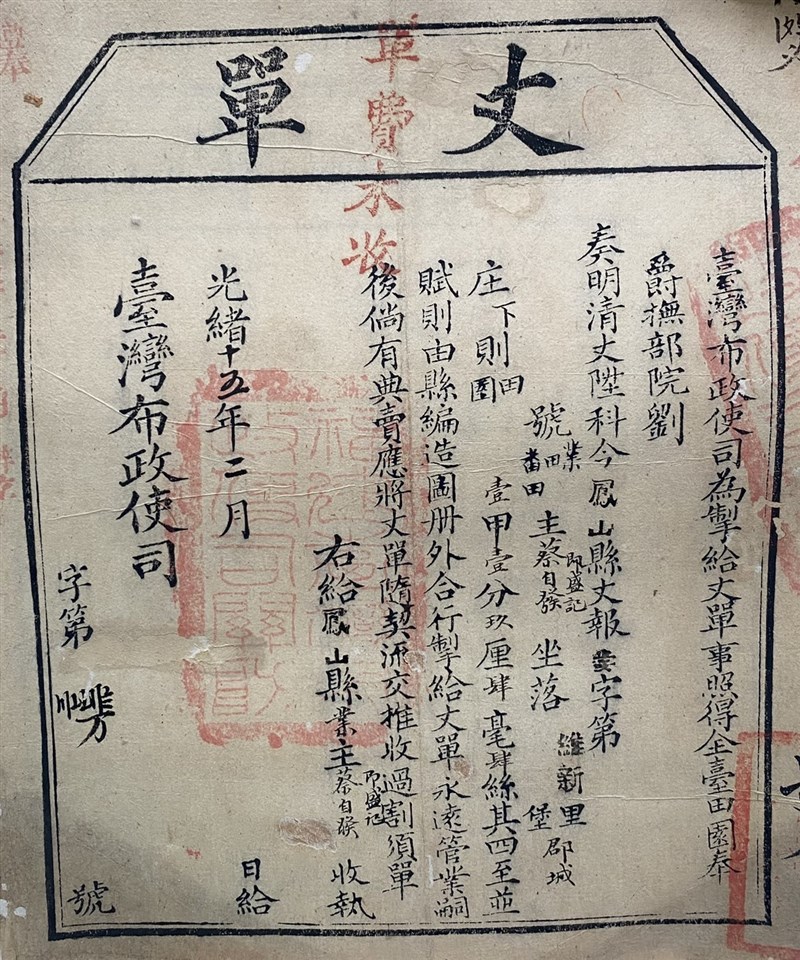 丈單
單費未收
臺灣布政使司為掣給丈單事照得全臺田園奉
爵撫部院劉
奏明清丈陞科今鳳山縣丈報字第
號業田主蔡自發即盛記坐落維新里堡郡城
庄下則田園壹甲壹分玖厘肆毫肆絲其四至並
賦則由縣編造圖册外合行掣給丈單永遠管業嗣
後倘有典賣應將丈單隨契流交推收過割須單
右給鳳山縣業主蔡自發即盛記收執
光緒十五年二月日給
臺灣布政使司
字第號